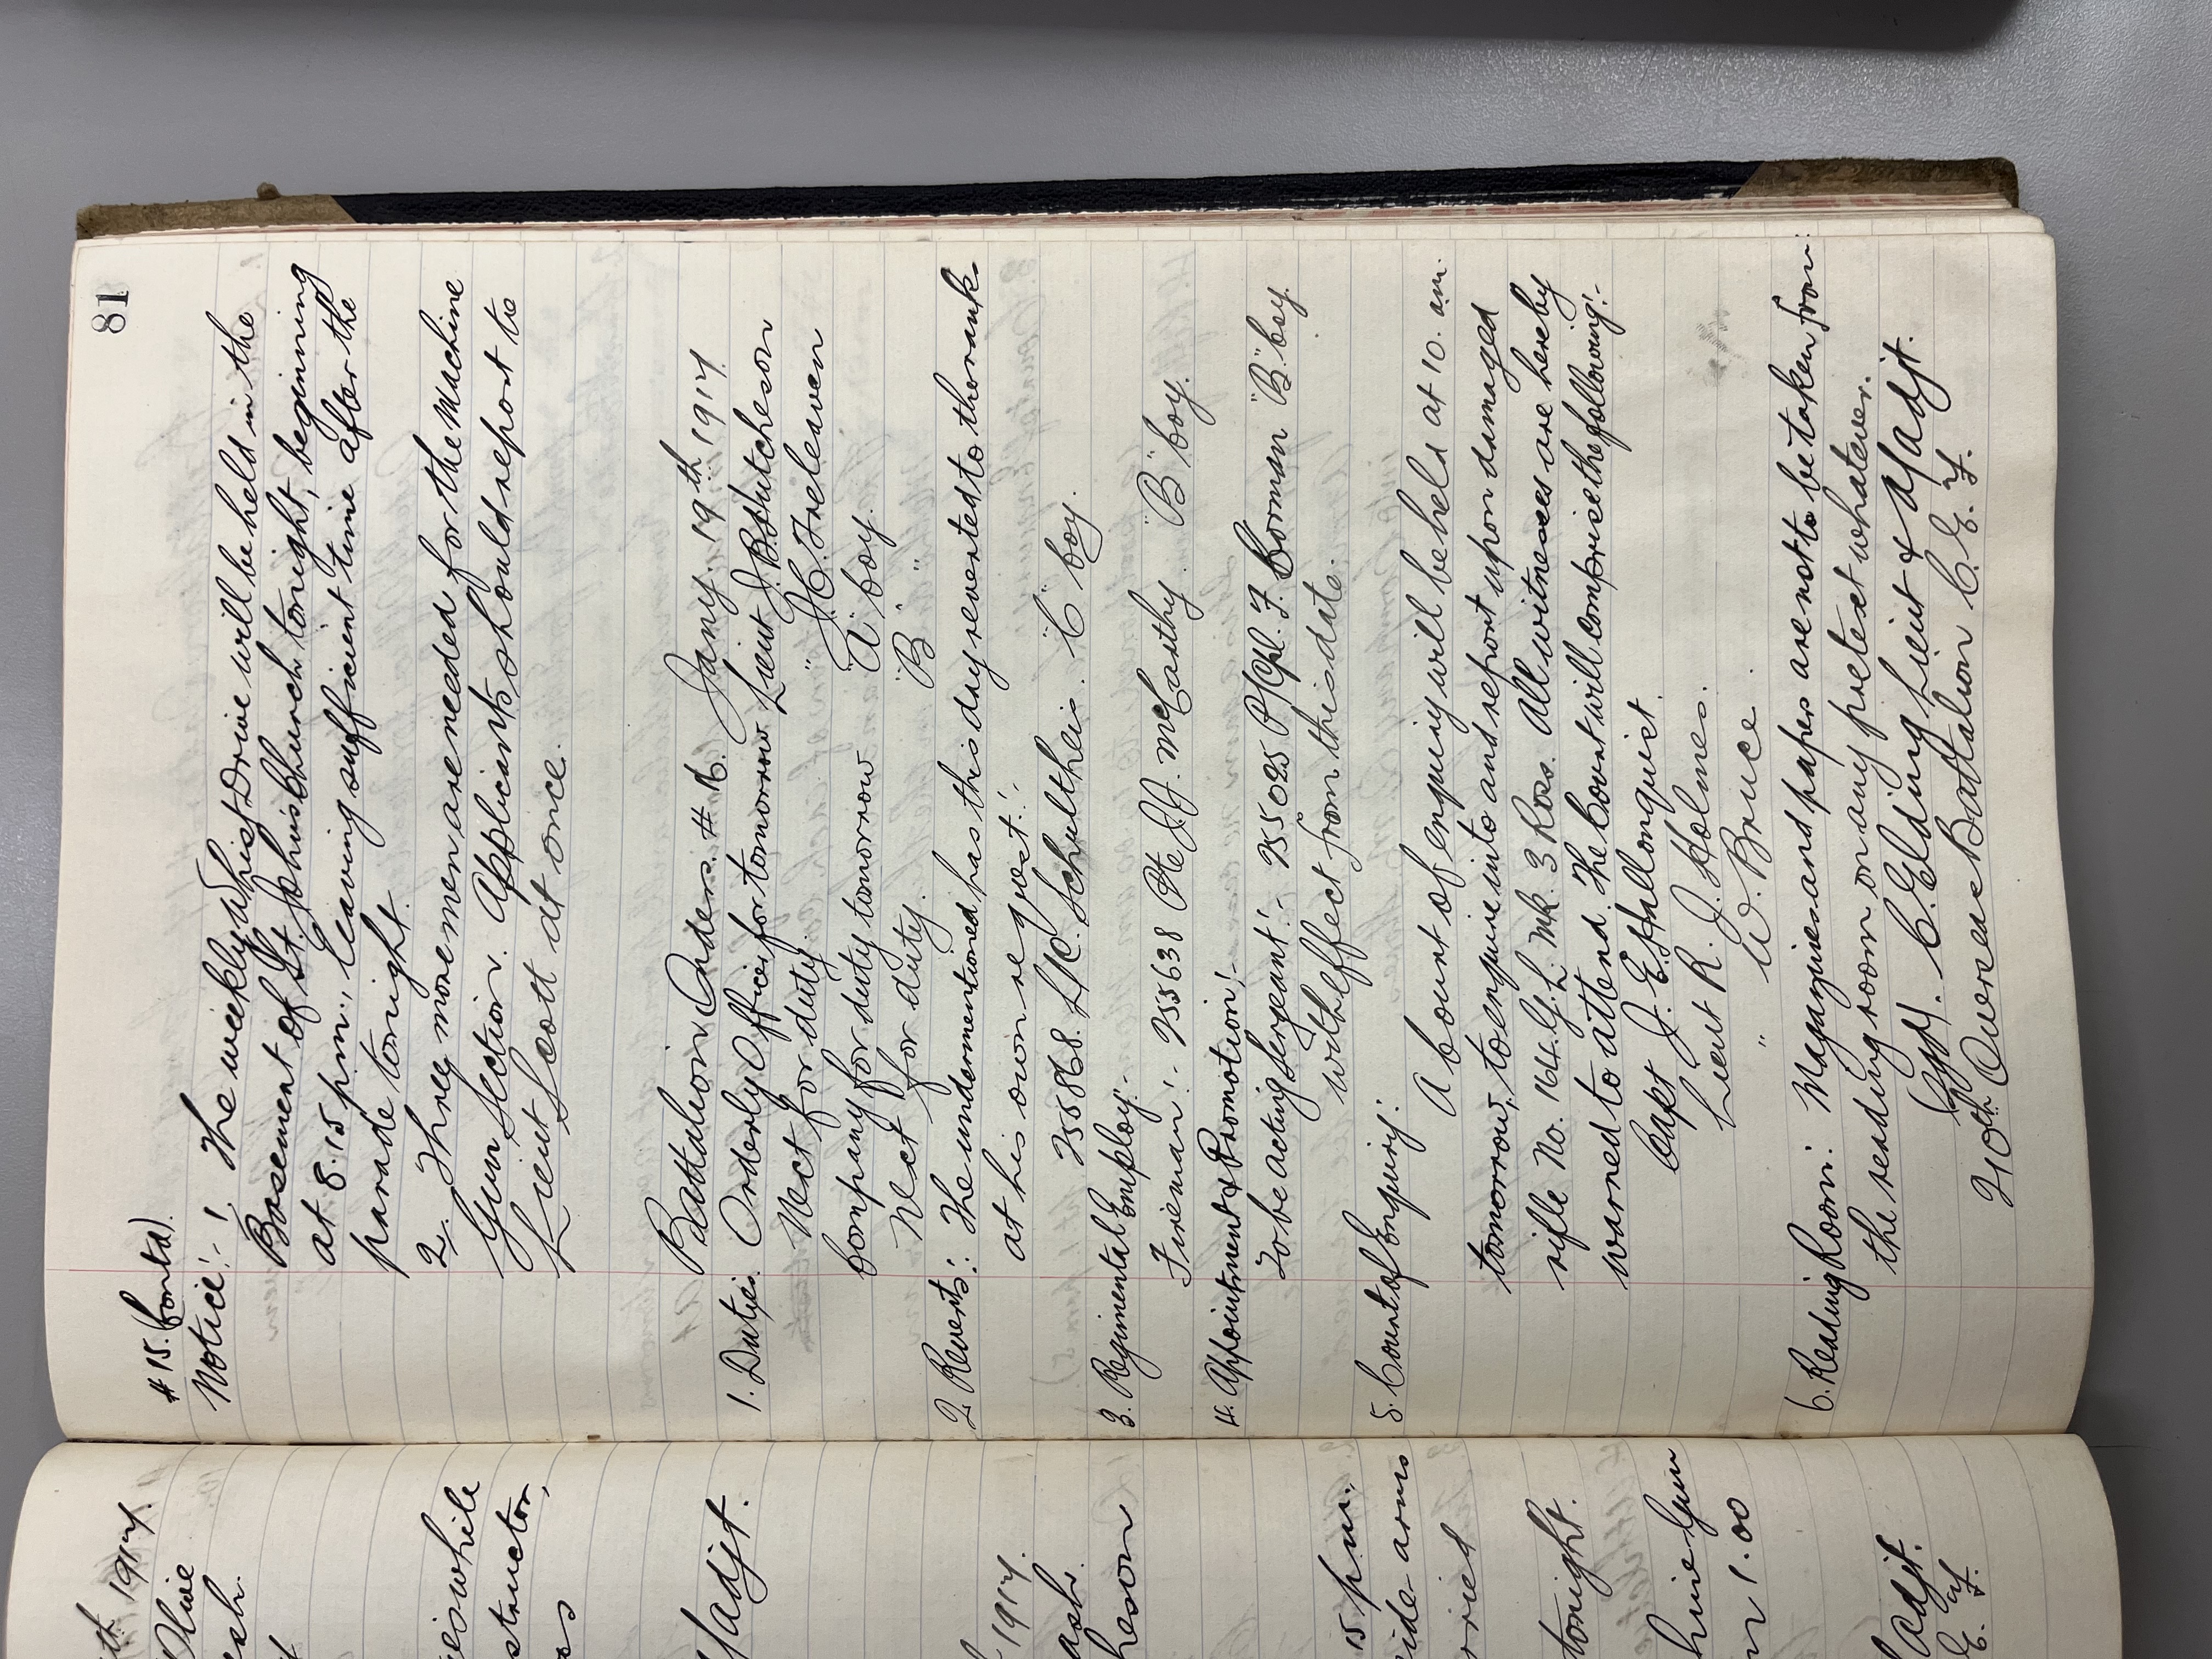 81
#15. (Contd).
Notice:- 1. The weekly Whist Drive will be held in the
Basement of St. Johns Church tonight, beginning
at 8.15 p.m., leaving sufficient time after the
parade tonight.
2. Three more men are needed for the Machine
Gun Section. Applicants should report to
Lieut Scott at once.
Battalion Orders. #16. Jany. 19th 1917.
1. Duties. Orderly Officer for tomorrow Lieut J. B. Hutcheson
Next for duty. " J. C. Treleaven
Company for duty tomorrow "A" Coy.
Next for duty. "B" "
2. Reverts:- The undermentioned has this day reverted to the ranks
at his own request:-
255868. L/C. Schultheis. "C" Coy.
3. Regimental Employ:-
Fireman:- 255638 Pte J.J. McCarthy. "B" Coy.
4. Appointment & Promotion:-
To be acting Sergeant:- 255025 P/Cpl. F. Corman "B" Coy.
with effect from this date.
5. Court of Enquiry:- A Court of enquiry will be held at 10. am.
tomorrow, to enquire into and report upon damaged
rifle No. 164. G.L. Mk. 3 Ross. All witnesses are hereby
warned to attend. The Court will comprise the following:-
Capt J. E. Hallonquist.
Lieut R. J. Holmes.
" W. Bruce.
6. Reading Room: Magazines and papers are not to be taken from
the reading room, on any pretext whatever.
(Sgd). C. Elding Lieut & A/adjt.
210th Overseas Battalion C. E. F.
th 1917.
Olive
ash.
while
structor,
/adjt.
1917.
ash.
heson
15 p.m.,
side-arms
rried
tonight.
hine Gun
1.00
adjt.
E. F.